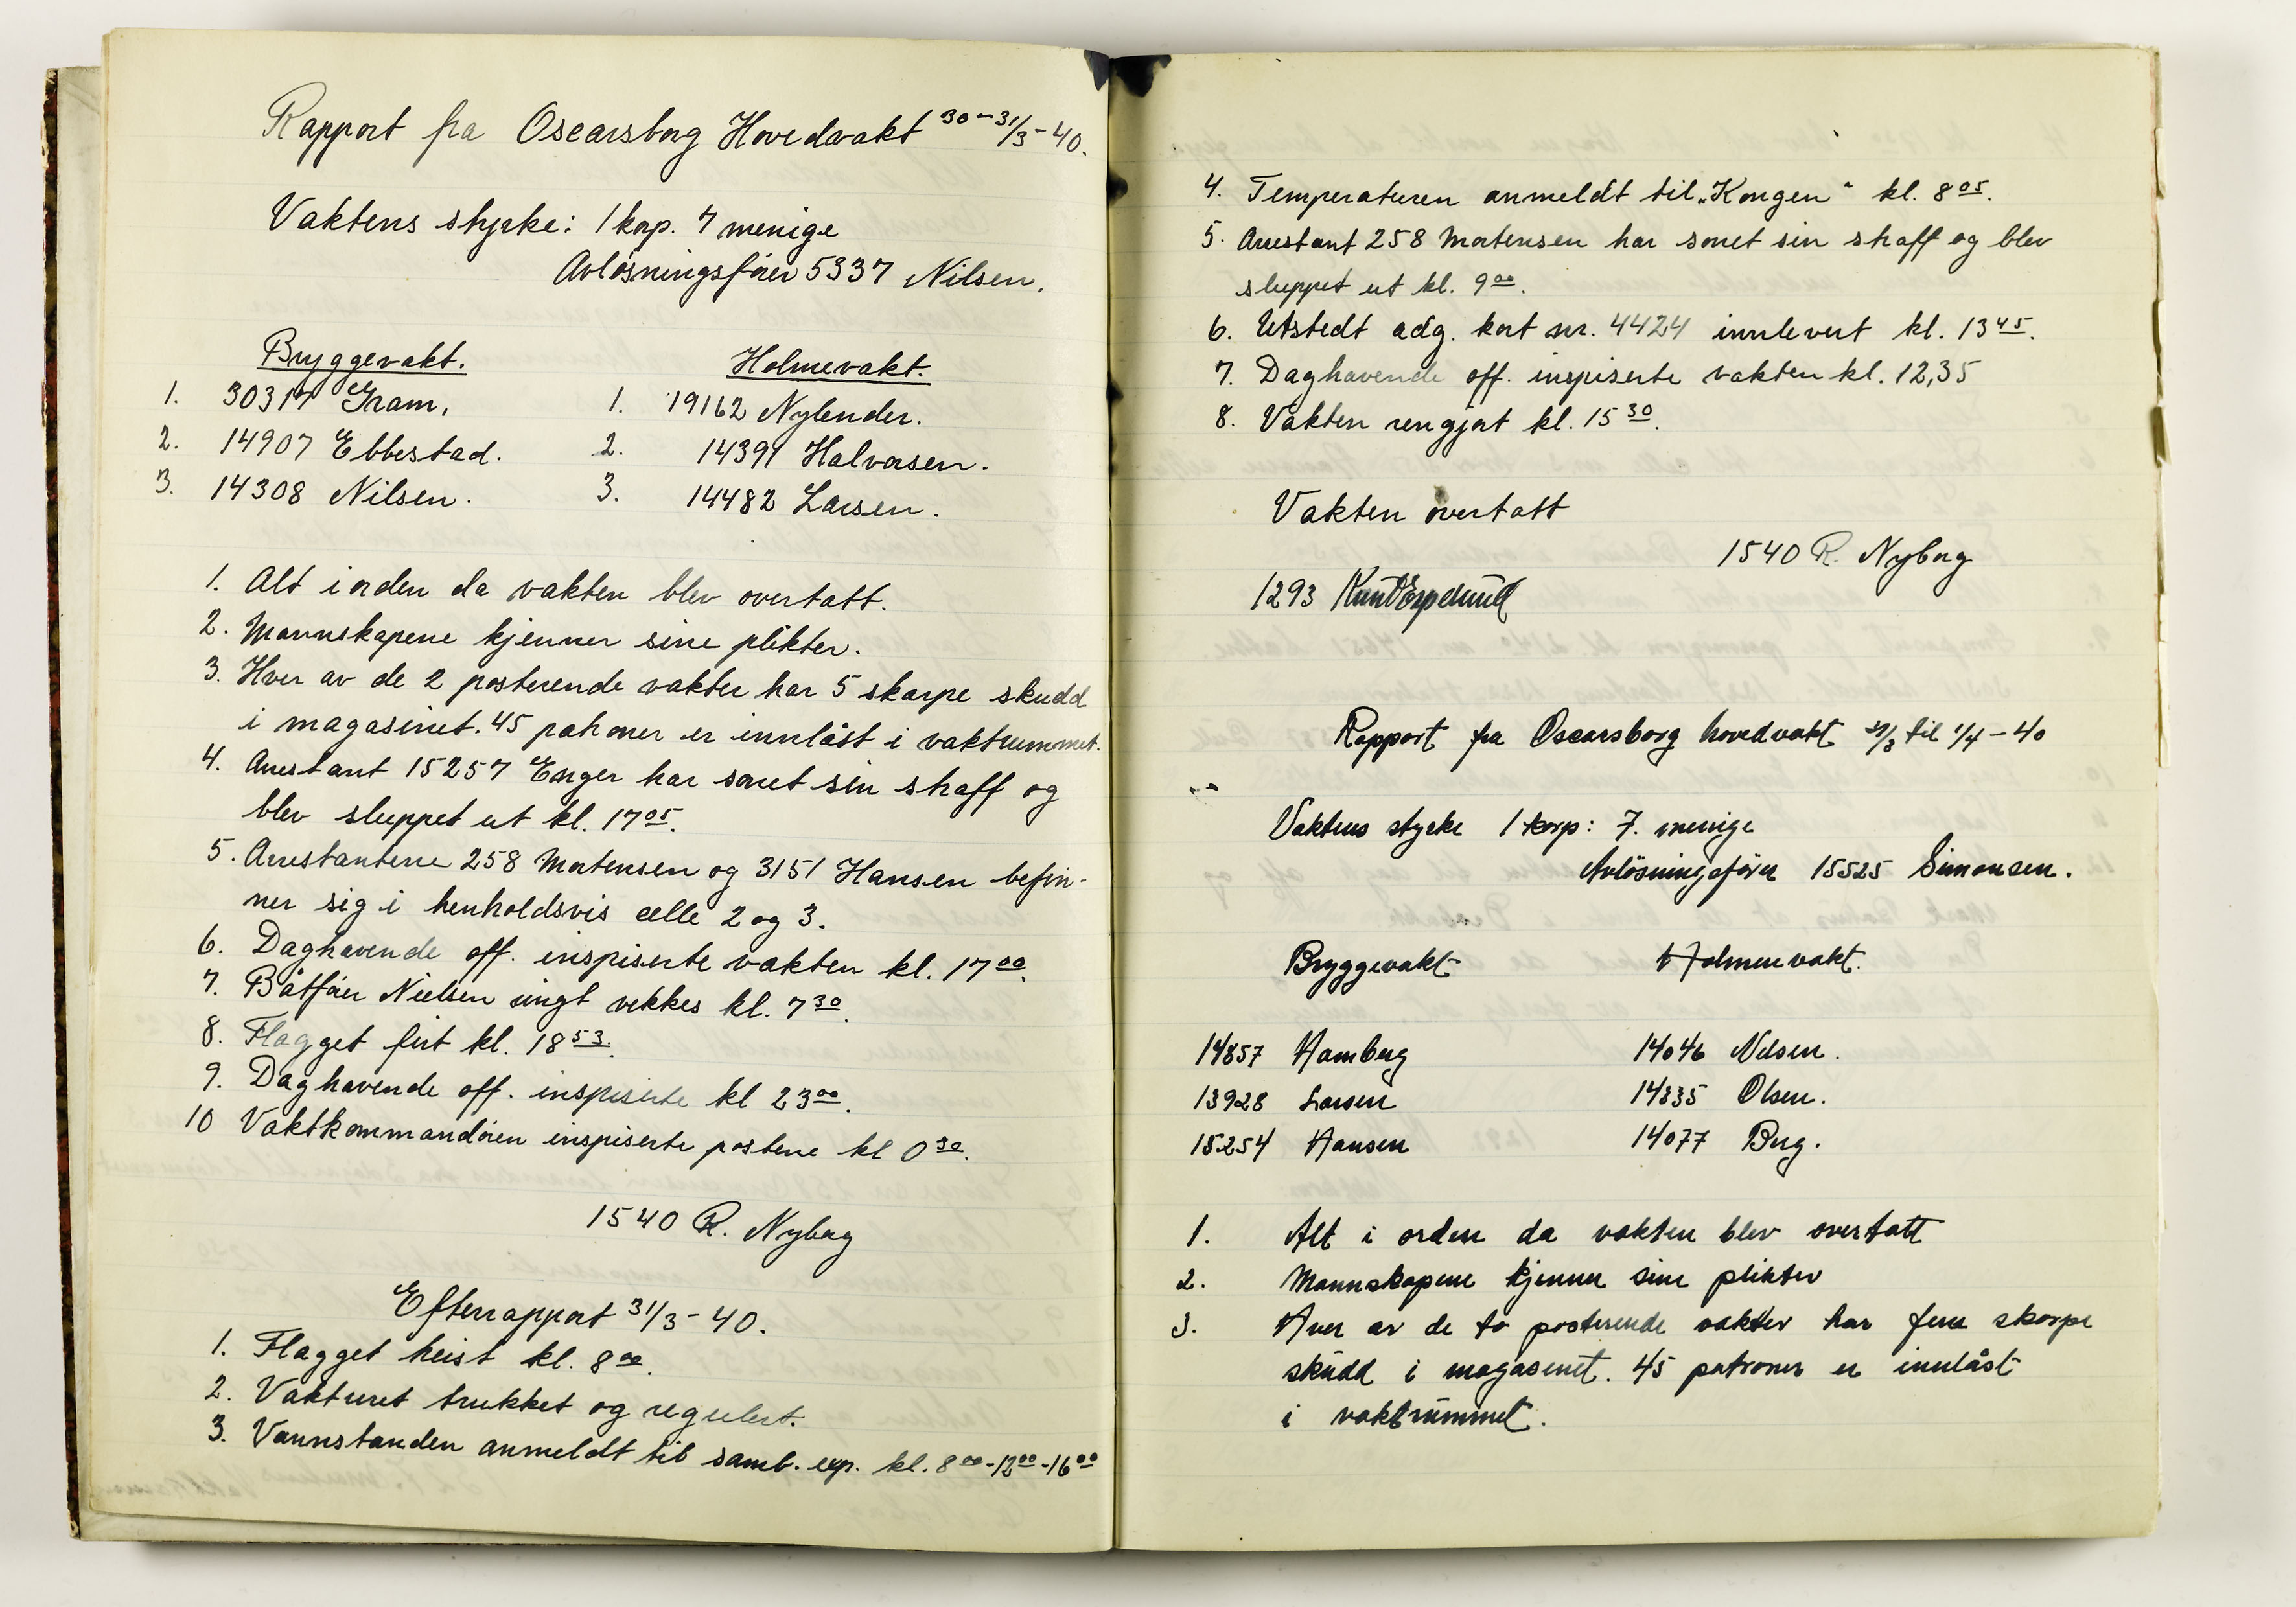 Rapport fra Oscarsborg Hovedvakt 30-31/3-40.
Vaktens styrke: 1 korp. 7 menige
Avlösningsförer 5337 Nilsen.
Bryggevakt. Holmevakt.
1. 30317 Gram. 1. 19162 Nylender.
2. 14907 Ebbestad. 2. 14391 Halvorsen.
3. 14308 Nilsen. 3. 14482 Larsen.
1. Alt i orden da vakten blev overtatt.
2. Mannskapene kjenner sine plikter.
3. Hver av de 2 posterende vakter har 5 skarpe skudd
i magasinet. 45 patroner er innlåst i vaktrummet.
4. Arrestant 15257 Enger har sonet sin straff og
blev sluppet ut kl. 17 05.
5. Arrestantene 258 Mortensen og 3151 Hansen befin-
ner sig i henholdsvis celle 2 og 3.
6. Daghavende off. inspiserte vakten kl. 17 00.
7. Båtförer Nielsen vekkes kl. 7 30.
8. Flagget firt kl. 18 53.
9. Daghavende off. inspiserte kl 23 00.
10 Vaktkommandören inspiserte postene kl 0 30.
1540 R. Nyborg
Efterrapport 31/3-40.
1. Flagget heist kl. 8 00.
2. Vakturet trukket og regulert.
3. Vannstanden anmeldt til samb. exp. kl. 8 00-12 00-16 00
4. Temperaturen anmeldt til „Kongen“ kl. 8 05.
5. Arrestant 258 Mortensen har sonet sin straff og blev
sluppet ut kl. 9 00.
6. Utstedt adg. kort nr. 4424 innlevert kl. 13 45.
7. Daghavende off. inspiserte vakten kl. 12,35
8. Vakten rengjort kl. 15 30.
Vakten overtatt
1540 R. Nyborg
1293 Knut
Rapport fra Oscarsborg hovedvakt 31/3 til 1/4-40
Vaktens styrke 1 korp: 7. menige
Avlösningsförer 15525 Simonsen.
Bryggevakt Holmenvakt.
14857 Hamberg 14046 Nilsen.
13928 Larsen 14335 Olsen.
15254 Hansen 14077 Berg.
1. Alt i orden da vakten blev overtatt
2. Mannskapene kjenner sine plikter
3. Hver av de to posterende vakter har fem skarpe
skudd i magasinet. 45 patroner er innlåst
i vaktrummet.